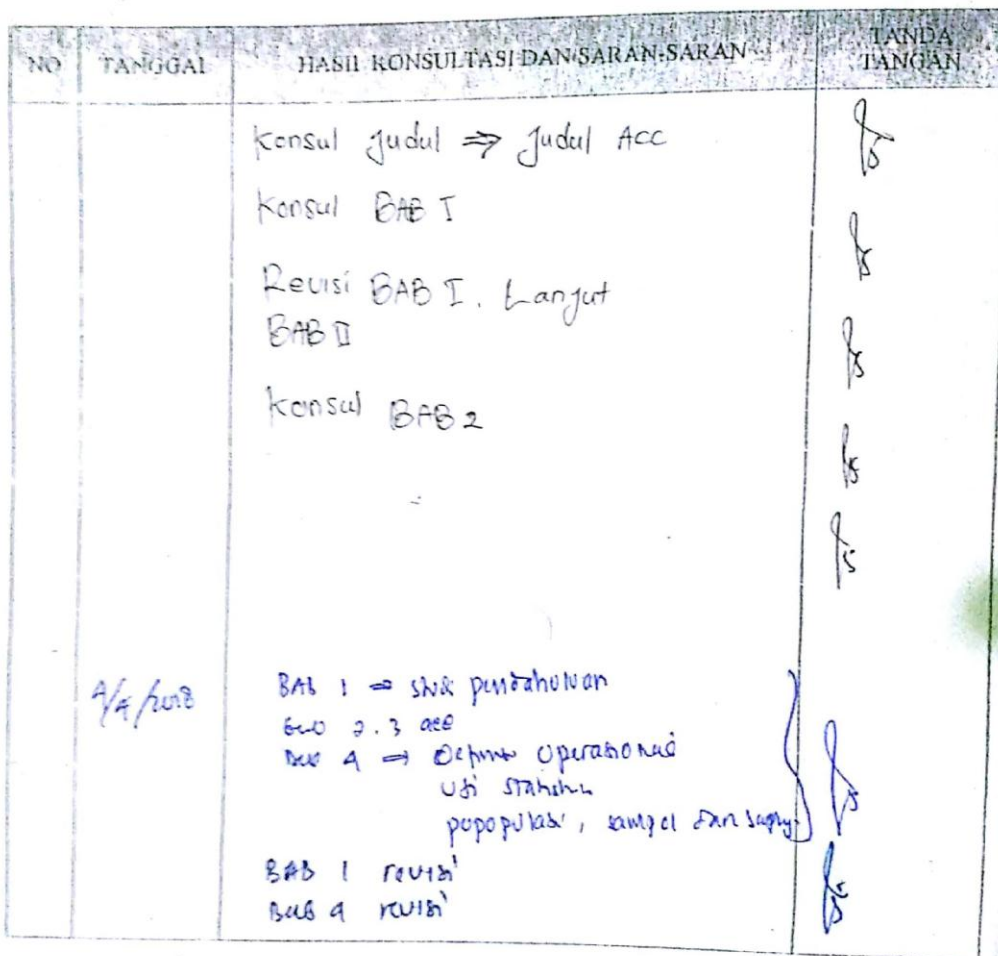 NO TANGGAL HASIL KONSULTASI DAN SARAN-SARAN TANDA TANGAN
Konsul Judul ⇒ Judul ACC
Konsul BAB I
Revisi BAB I. Lanjut
BAB II
Konsul BAB 2
4/4/2018 BAB 1 ⇒ pendahuluan
2.3 acc
Bab 4 ⇒ Operasional
Uji
popopulasi, sampel dan
BAB 1 revisi
Bab 4 revisi